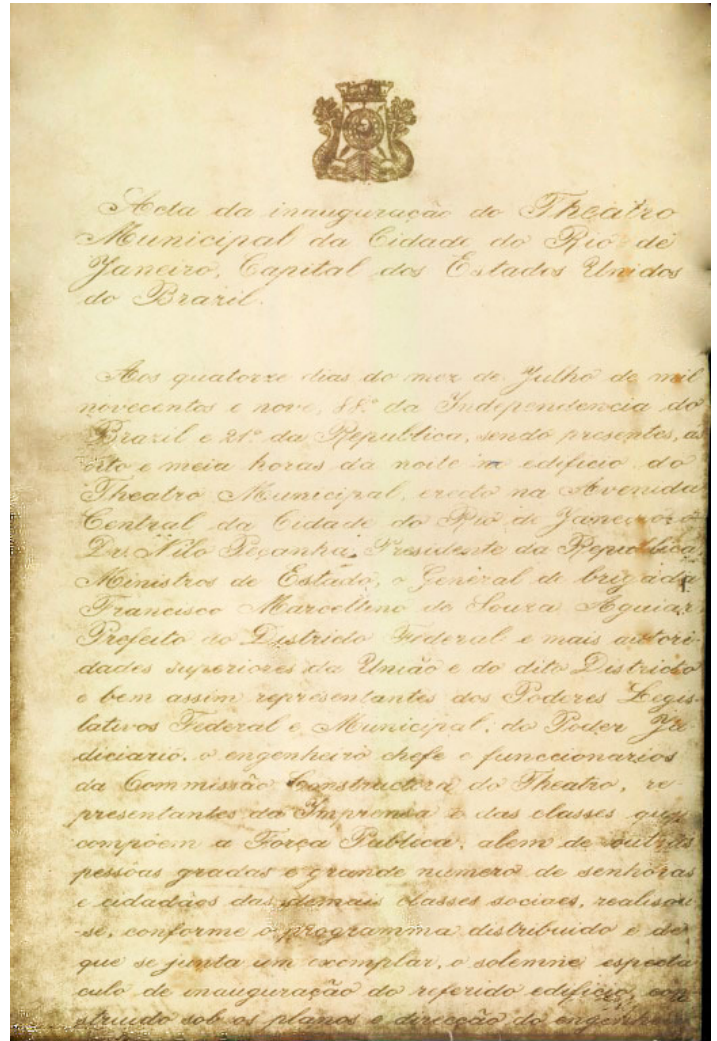 Acta da inauguração do Theatro
Municipal da Cidade do Rio de
Janeiro, Capital dos Estados Unidos
do Brazil.
Aos quatorze dias do mez de Julho de mil
novecentos e nove, 88.º da Independencia do
Brazil e 21.º da Republica, sendo presentes, ás
oito e meia horas da noite no edificio do
Theatro Municipal, erecto na Avenida
Central da Cidade do Rio de Janeiro, o
Dr. Nilo Peçanha, Presidente da Republica,
Ministros de Estado, o General de brigada
Francisco Marcellino de Souza Aguiar,
Prefeito do Districto Federal e mais autori-
dades superiores da União e do dito Districto
e bem assim representantes dos Poderes Legis-
lativos Federal e Municipal, do Poder Ju-
diciario, o engenheiro chefe e funccionarios
da Commissão Constructora do Theatro, re-
presentantes da Imprensa e das classes que
compõem a Força Publica, alem de outras
pessoas gradas e grande numero de senhoras
e cidadãos das demais classes sociaes, realisou-
-se, conforme o programma distribuido e de
que se junta um exemplar, o solemne especta
culo de inauguração do referido edificio, con
struido sob os planos e direcção do engenheiro